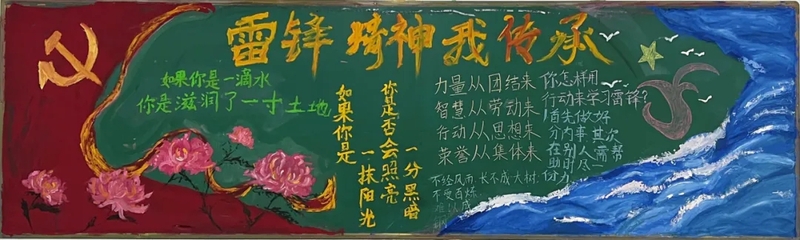 雷锋精神我传承
如果你是一滴水
你是滋润了一寸土地
如果你是
一抹阳光
你是否会照亮
一分黑暗
力量从团结来
智慧从劳动来
行动从思想来
荣誉从集体来
你怎样用
行动来学习雷锋?
首先做好
分内事 其次
在别人需帮
助时尽一
份力
不经风雨 长不成大树
不受百炼
难以成